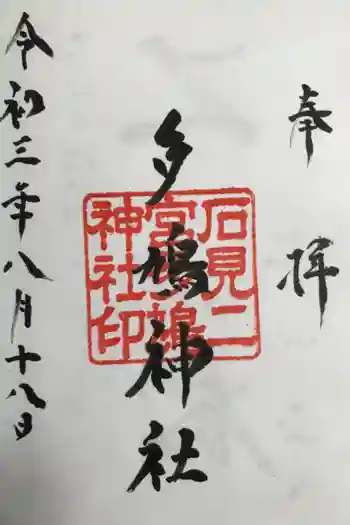 奉拝
多鳩神社
石見二
宮多鳩
神社印
令和三年八月十八日